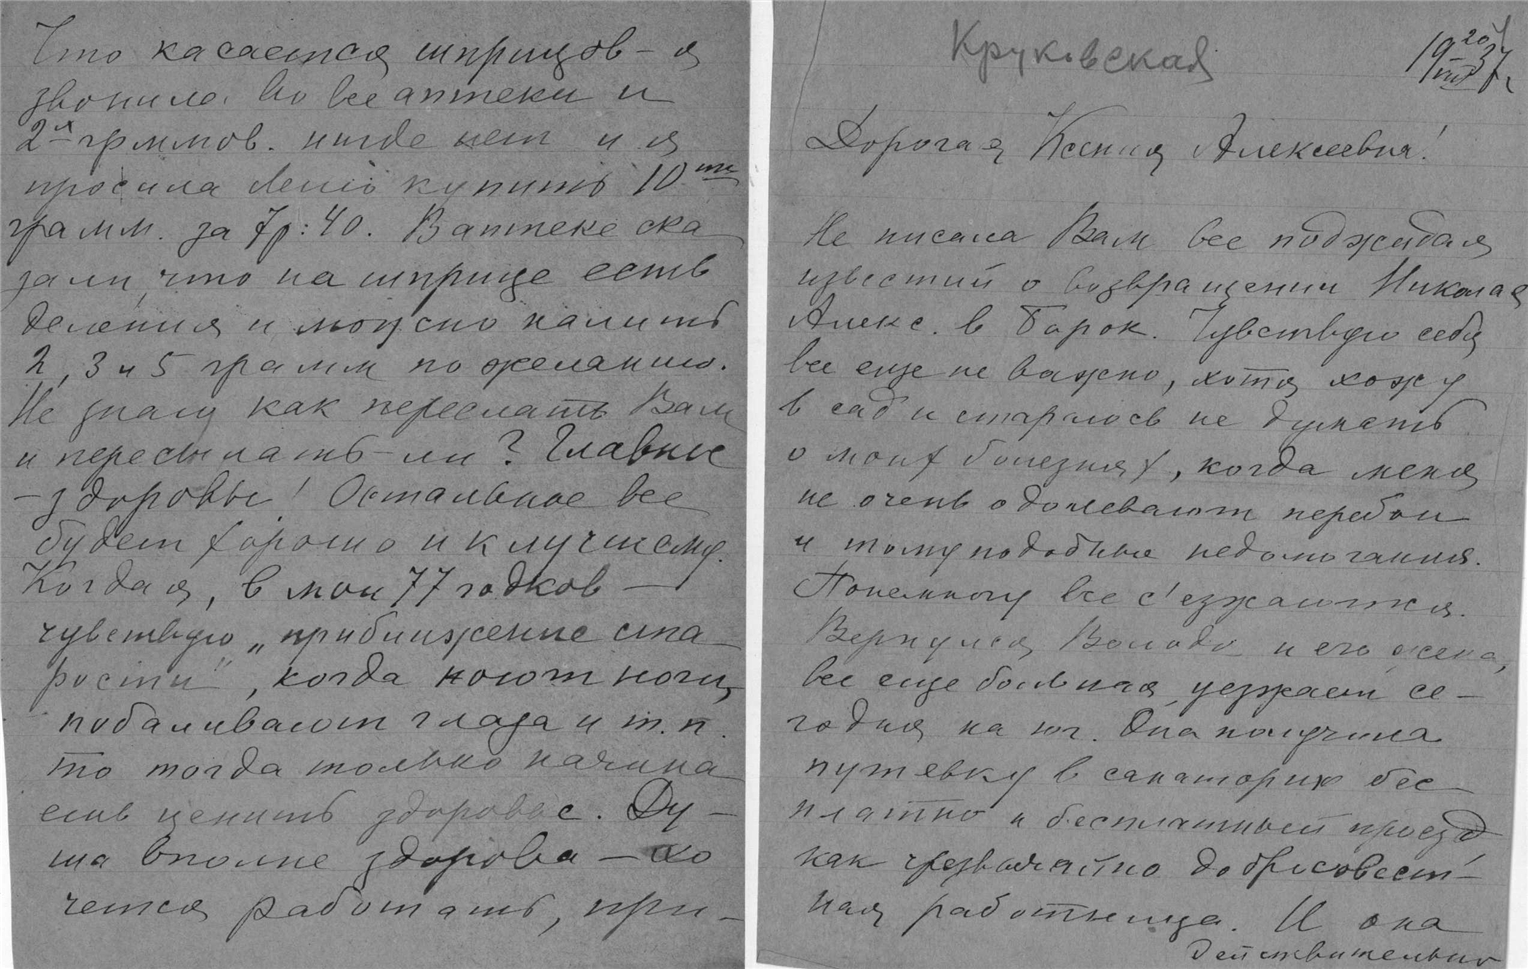 Что касается шприцов – я
звонила во все аптеки и
2х грммов. нигде нет и я
просила Лелю купить 10ти
грамм. за 7р: 40. В аптеке ска
зали, что на шприце есть
деления и можно налить
2, 3 и 5 грамм по желанию.
Не знаю как переслать Вам
и пересылать-ли? Главное
– здоровье! Остальное все
будет хорошо и к лучшему.
Когда я, в мои 77 годков –
чувствую „приближение ста
рости“, когда ноют ноги,
побаливают глаза и т.п.
то тогда только начина
ешь ценить здоровье. Ду–
ша вполне здорова – хо
чется работать, при–
Круковская
19 20/VIII 37 г.
Дорогая Ксения Алексеевна!
Не писала Вам все поджидая
известий о возвращении Николая
Алекс. в Борок. Чувствую себя
все еще не важно, хотя хожу
в сад и стараюсь не думать
о моих болезнях, когда меня
не очень одолевают перебои
и тому подобные недомогания.
Понемногу все с'езжаются.
Вернулся Володя и его жена,
все еще больная, уезжает се–
годня на юг. Она получила
путевку в санаторию бес–
платно и бесплатный проезд
как чрезвычайно добросовест–
ная работница. И она
действительно